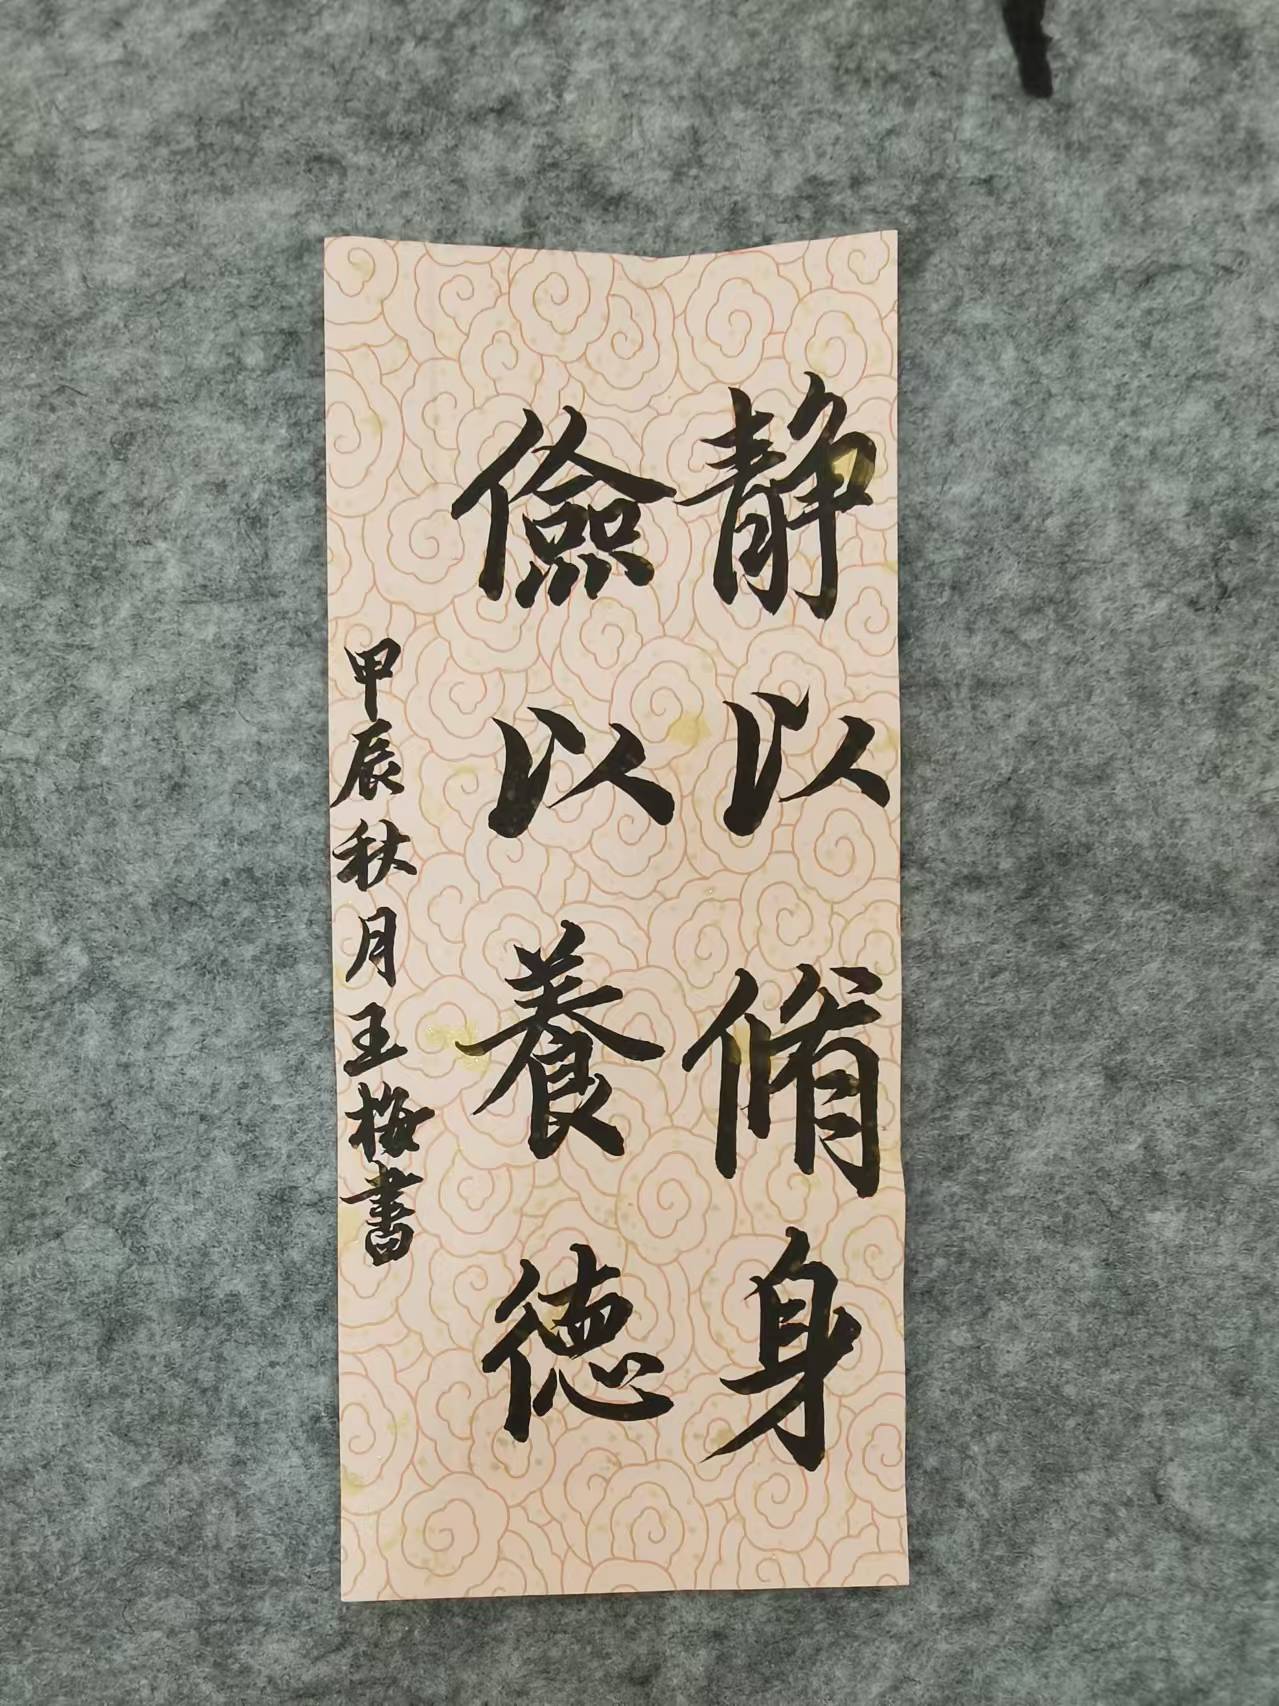 静以脩身
儉以養德
甲辰秋月王梅書